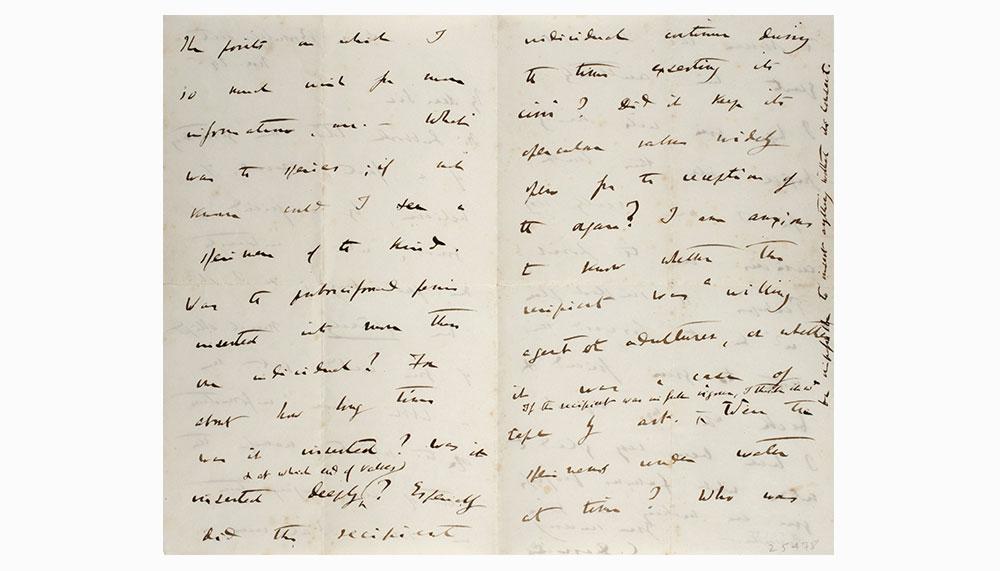 The points on which I
so much wish for more
information, are. What
was the species; if not
known could I see a
specimen of the kind.
Was the probosciformed penis
inserted into more than
one individual? For
about how long time
was it inserted? Was it
& at which end of valves
inserted deeply? Especially
did the recipient
individual continue during
the time exserting its
cirri? Did it keep its
operculum valves widely
open for the reception of
the organ? I am anxious
to know whether the
recipient was a willing
agent or adulterer, or whether
it was a case of
If the recipient was in full vigour, I think it wd
be impossible to insert anything without its consent.
rape by art. Were the
specimens under water
at time? Who was
25478